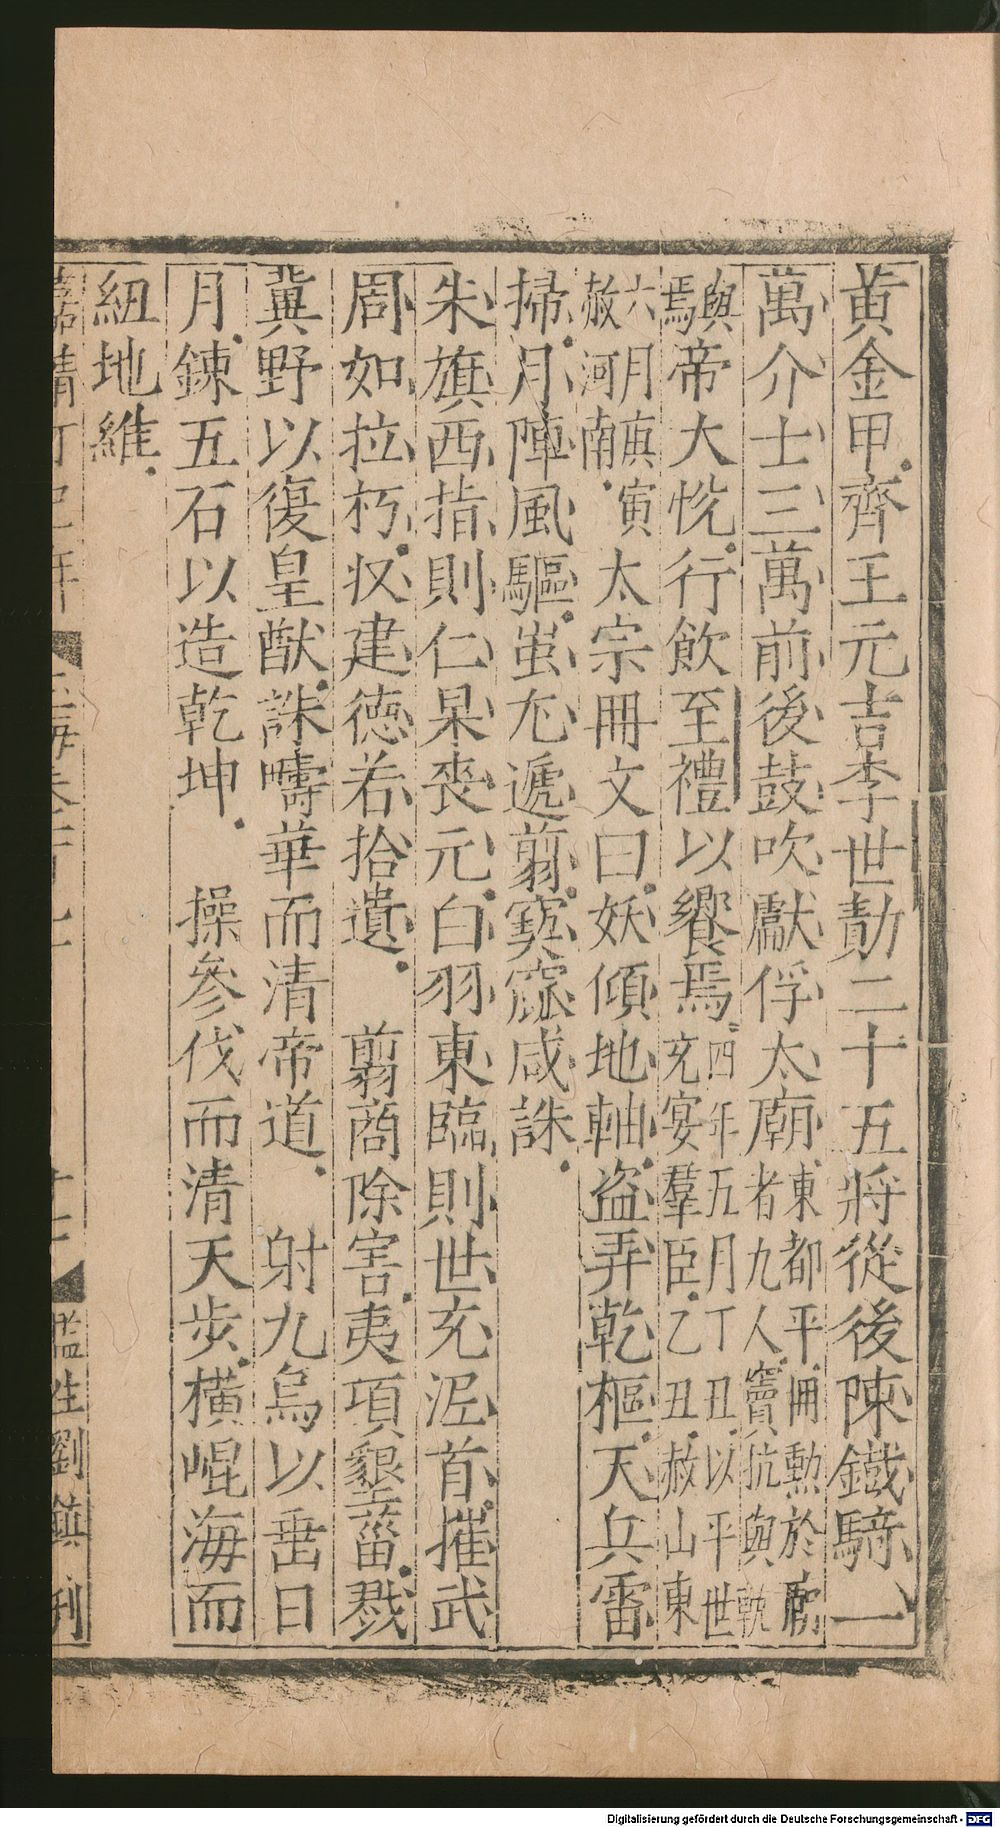 黄金甲齊王元吉李世勣二十五將從後陳鐵騎一
萬介士三萬前後鼓吹獻俘太廟東都平册勲於廟者九人竇抗與軌
與焉帝大悅行飲至禮以饗焉四年五月丁丑以平世充宴羣臣乙丑赦山東
六月寅赦河南太宗冊文曰妖傾地軸盗弄乾樞天兵雷
掃月陣風驅蚩尤遞翦窫窳咸誅
朱旗西指則仁杲喪元白羽東臨則世充泥首摧武
周如拉朽収建德若拾遺 翦商除害夷項墾菑戮
冀野以復皇猷誅疇華而清帝道 射九烏以畱日
月鍊五石以造乾坤 操參伐而清天步横崐海而
紐地維
嘉靖丁巳年 玉海卷 監生劉鎮刊
Digitalisierung gefördert durch die Deutsche Forschungsgemeinschaft - DFG